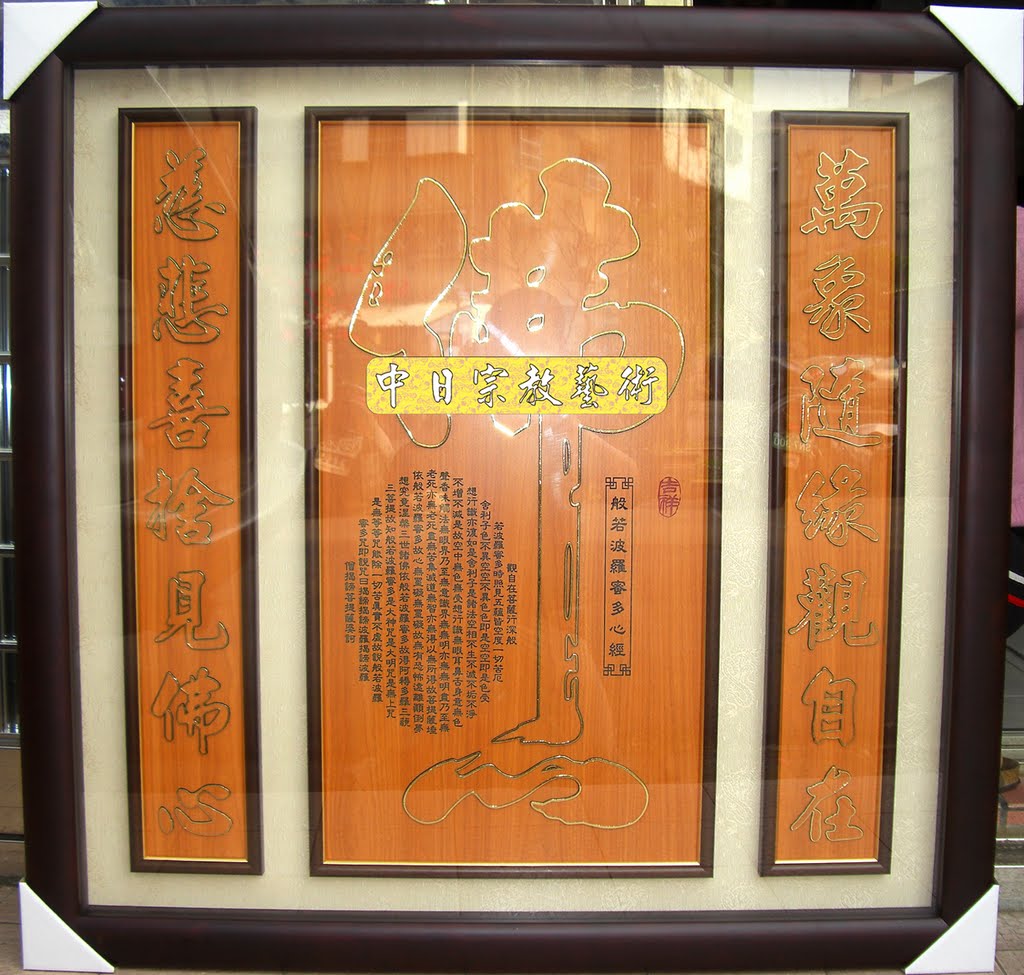 萬象隨緣觀自在
佛
中日宗教藝術
吉祥
般若波羅蜜多心經
觀自在菩薩行深般
若波羅蜜多時照見五蘊皆空度一切苦厄
舍利子色不異空空不異色色即是空空即是色受
想行識亦復如是舍利子是諸法空相不生不滅不垢不淨
不增不減是故空中無色無受想行識無眼耳鼻舌身意無色
聲香味觸法無眼界乃至無意識界無無明亦無無明盡乃至無
老死亦無老死盡無苦集滅道無智亦無得以無所得故菩提薩埵
依般若波羅蜜多故心無罣礙無罣礙故無有恐怖遠離顛倒夢
想究竟涅槃三世諸佛依般若波羅蜜多故得阿耨多羅三藐
三菩提故知般若波羅蜜多是大神咒是大明咒是無上咒
是無等等咒能除一切苦真實不虛故說般若波羅
蜜多咒即說咒曰揭諦揭諦波羅揭諦波羅
僧揭諦菩提薩婆訶
慈悲喜捨見佛心